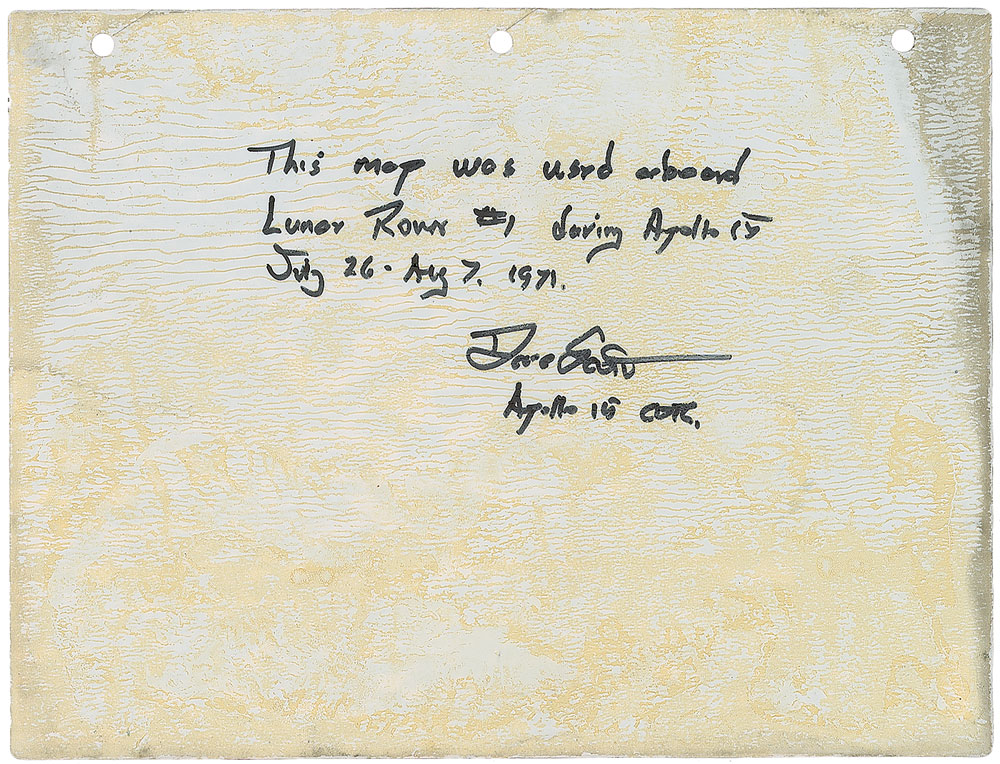 This map was used aboard
Lunar Rover #1 during Apollo 15
July 26 - Aug 7. 1971.
Dave Scott
Apollo 15 CDR.